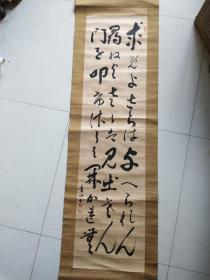 求めよさらは与へられん
尋ねよさらは見出さん
門を叩けさらは開かれん